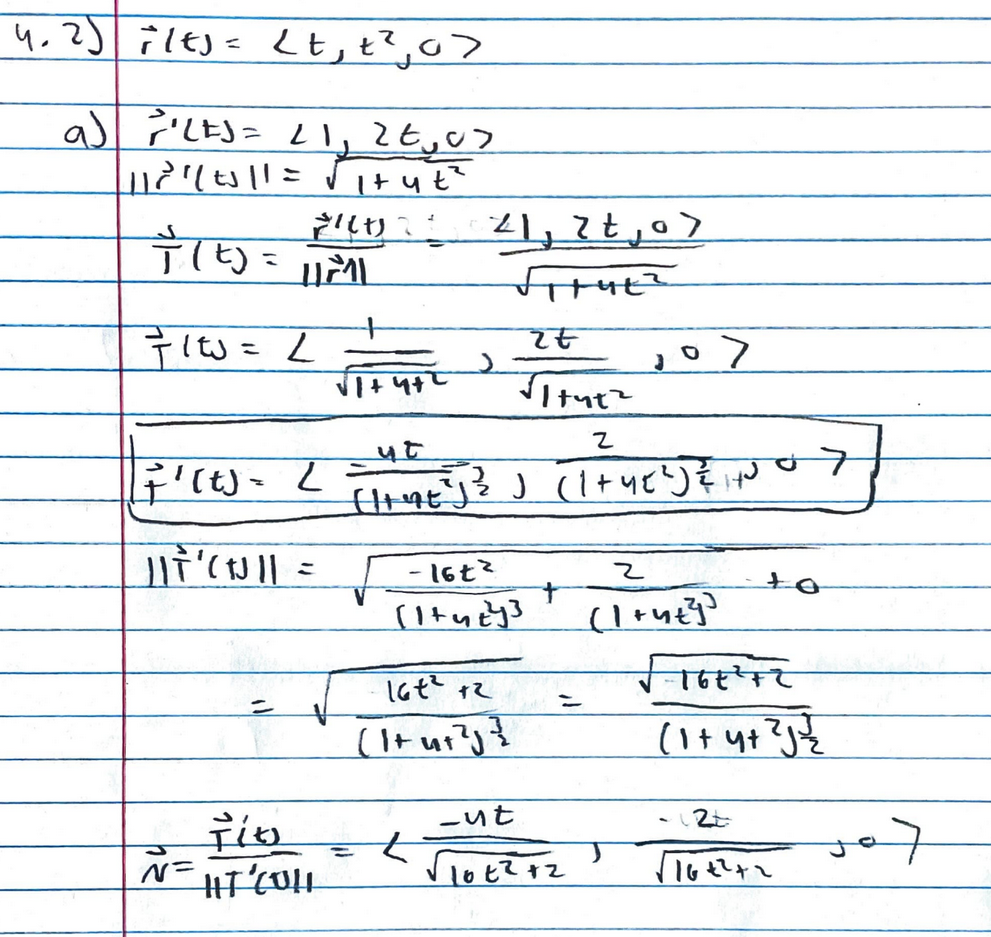 4.2) r⃗(t) = <t, t², 0>
a) r⃗'(t) = <1, 2t, 0>
||r⃗'(t)|| = √(1+4t²)
T⃗(t) = r⃗'(t)/||r⃗'|| = <1, 2t, 0>/√(1+4t²)
T⃗(t) = < 1/√(1+4t²), 2t/√(1+4t²), 0 >
T⃗'(t) = < -4t/(1+4t²)^(3/2), 2/(1+4t²)^(3/2), 0 >
||T⃗'(t)|| = √(-16t²/(1+4t²)³ + 2/(1+4t²)³ + 0)
= √(16t²+2/(1+4t²)^(3/2)) = √(-16t²+2)/(1+4t²)^(3/2)
N⃗ = T⃗'(t)/||T'(t)|| = < -4t/√(16t²+2), -2t/√(16t²+2), 0 >